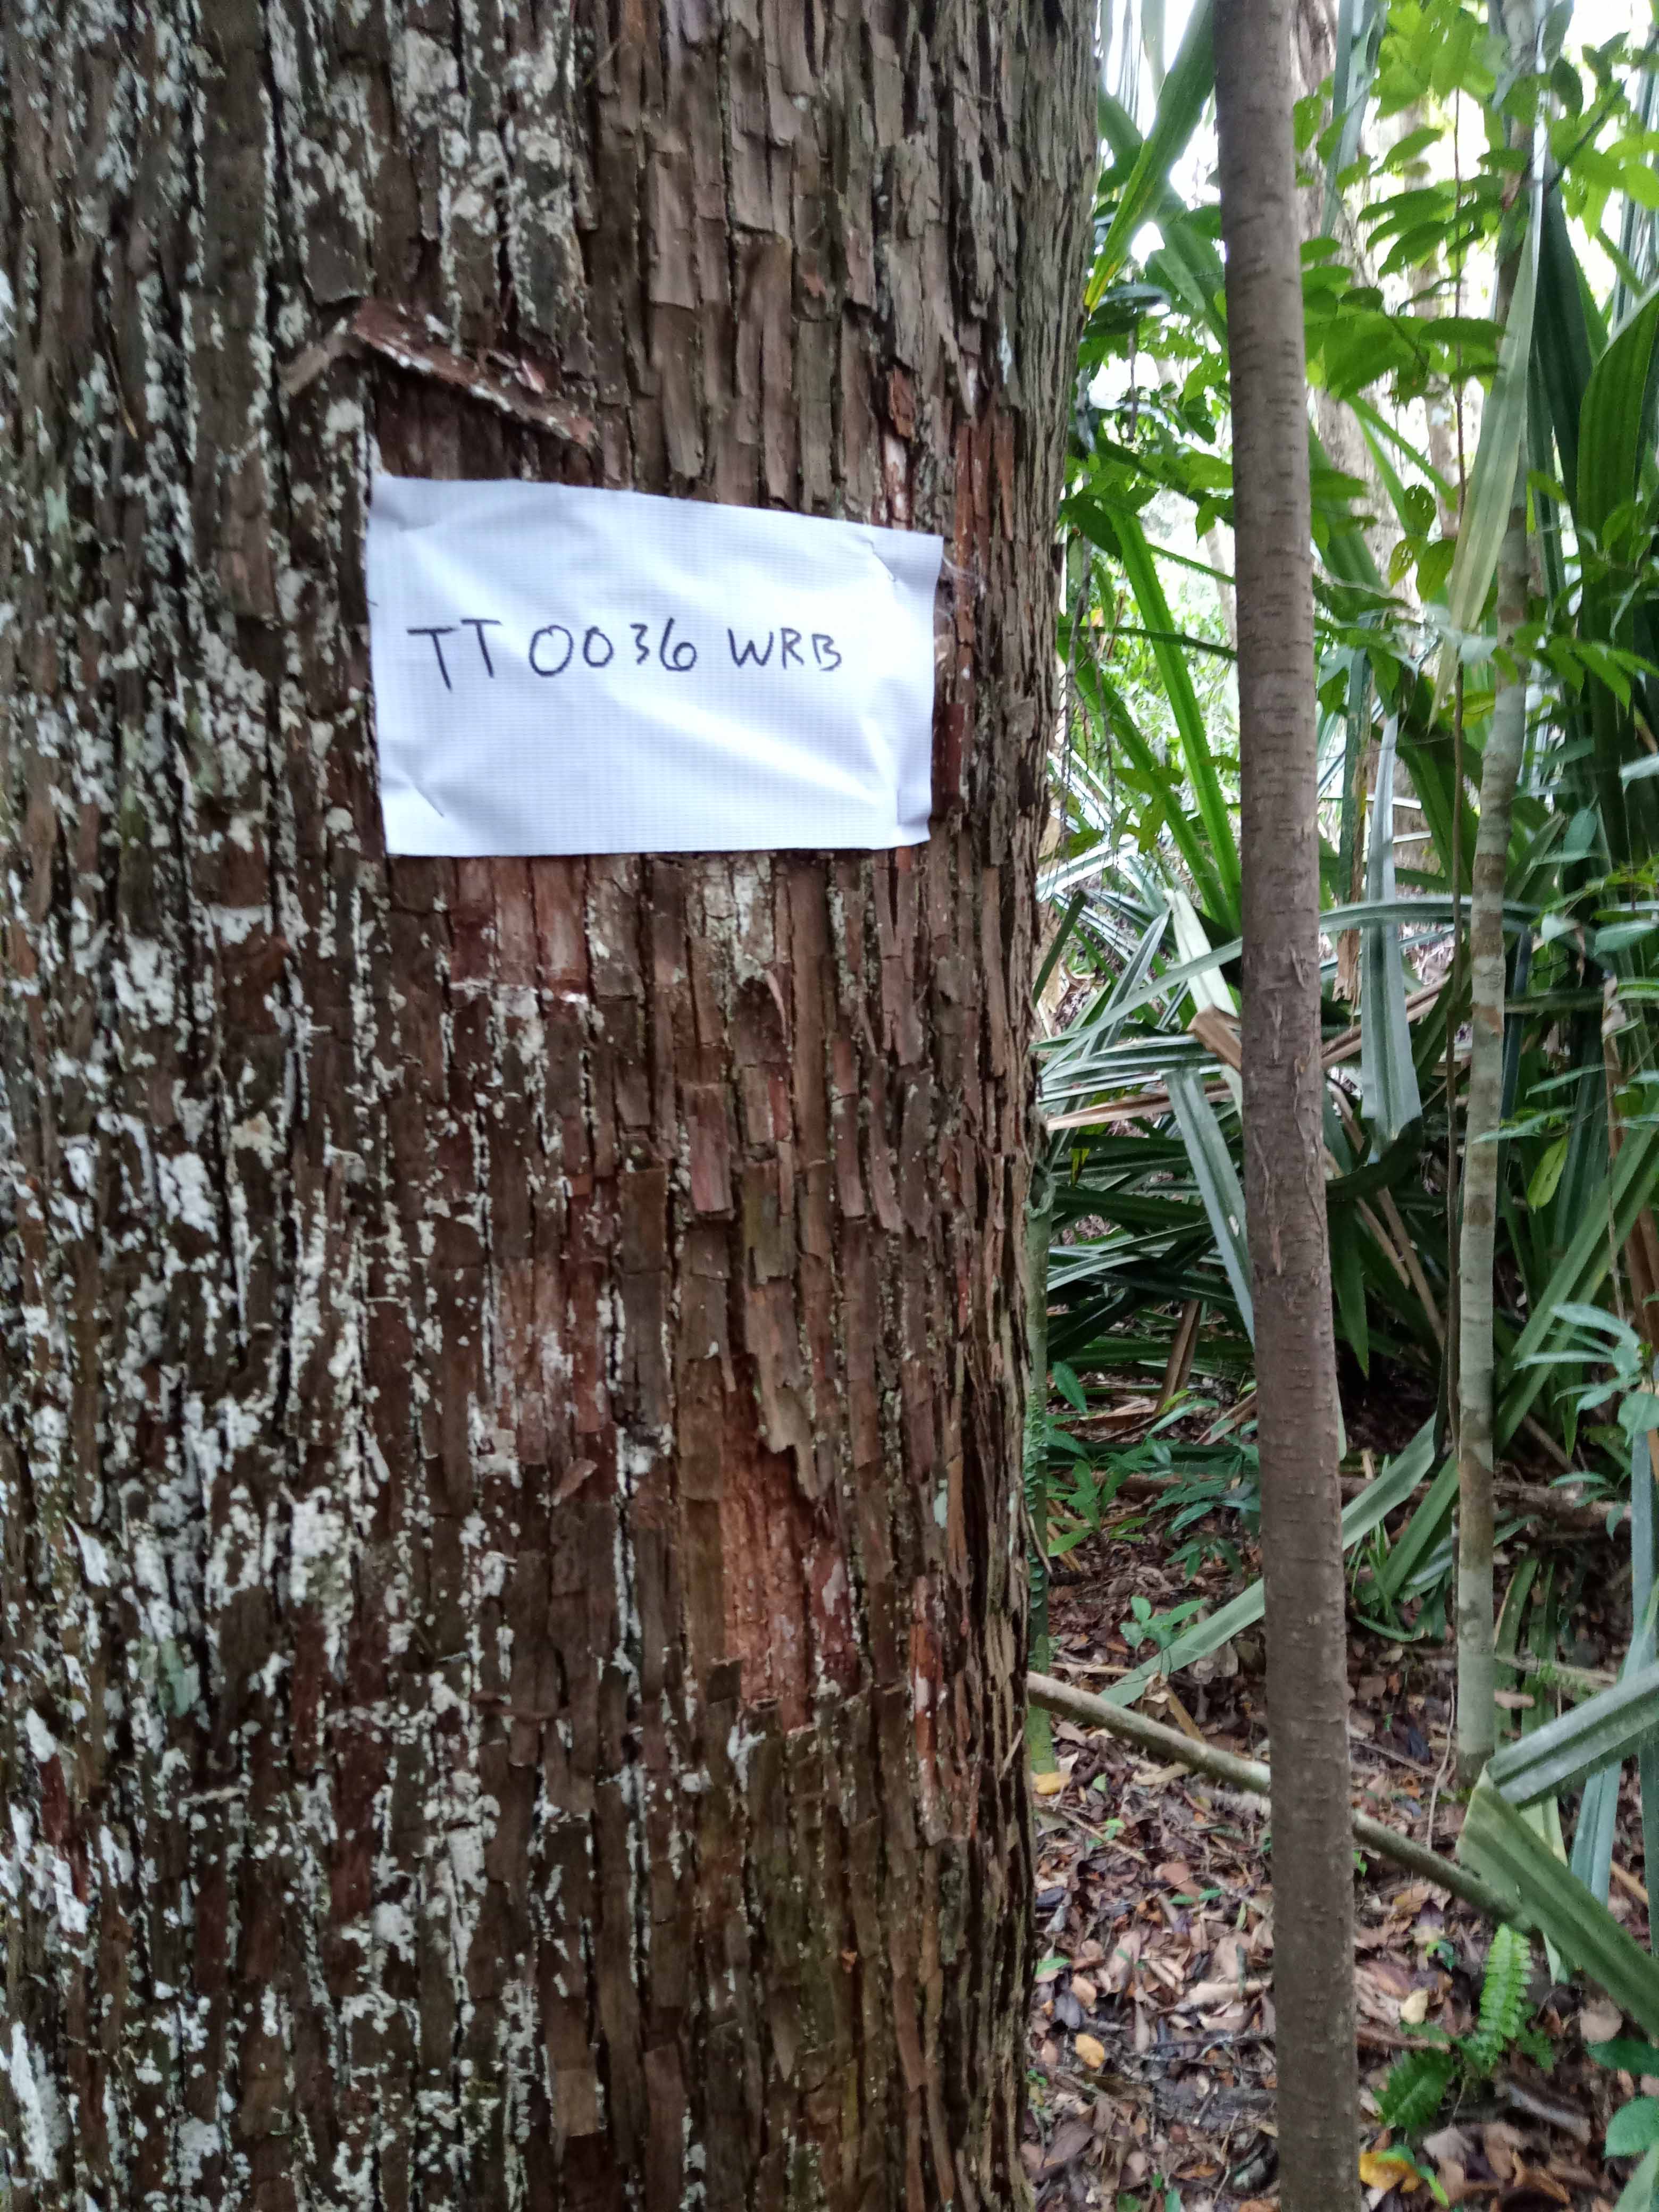 TT 0036 WRB